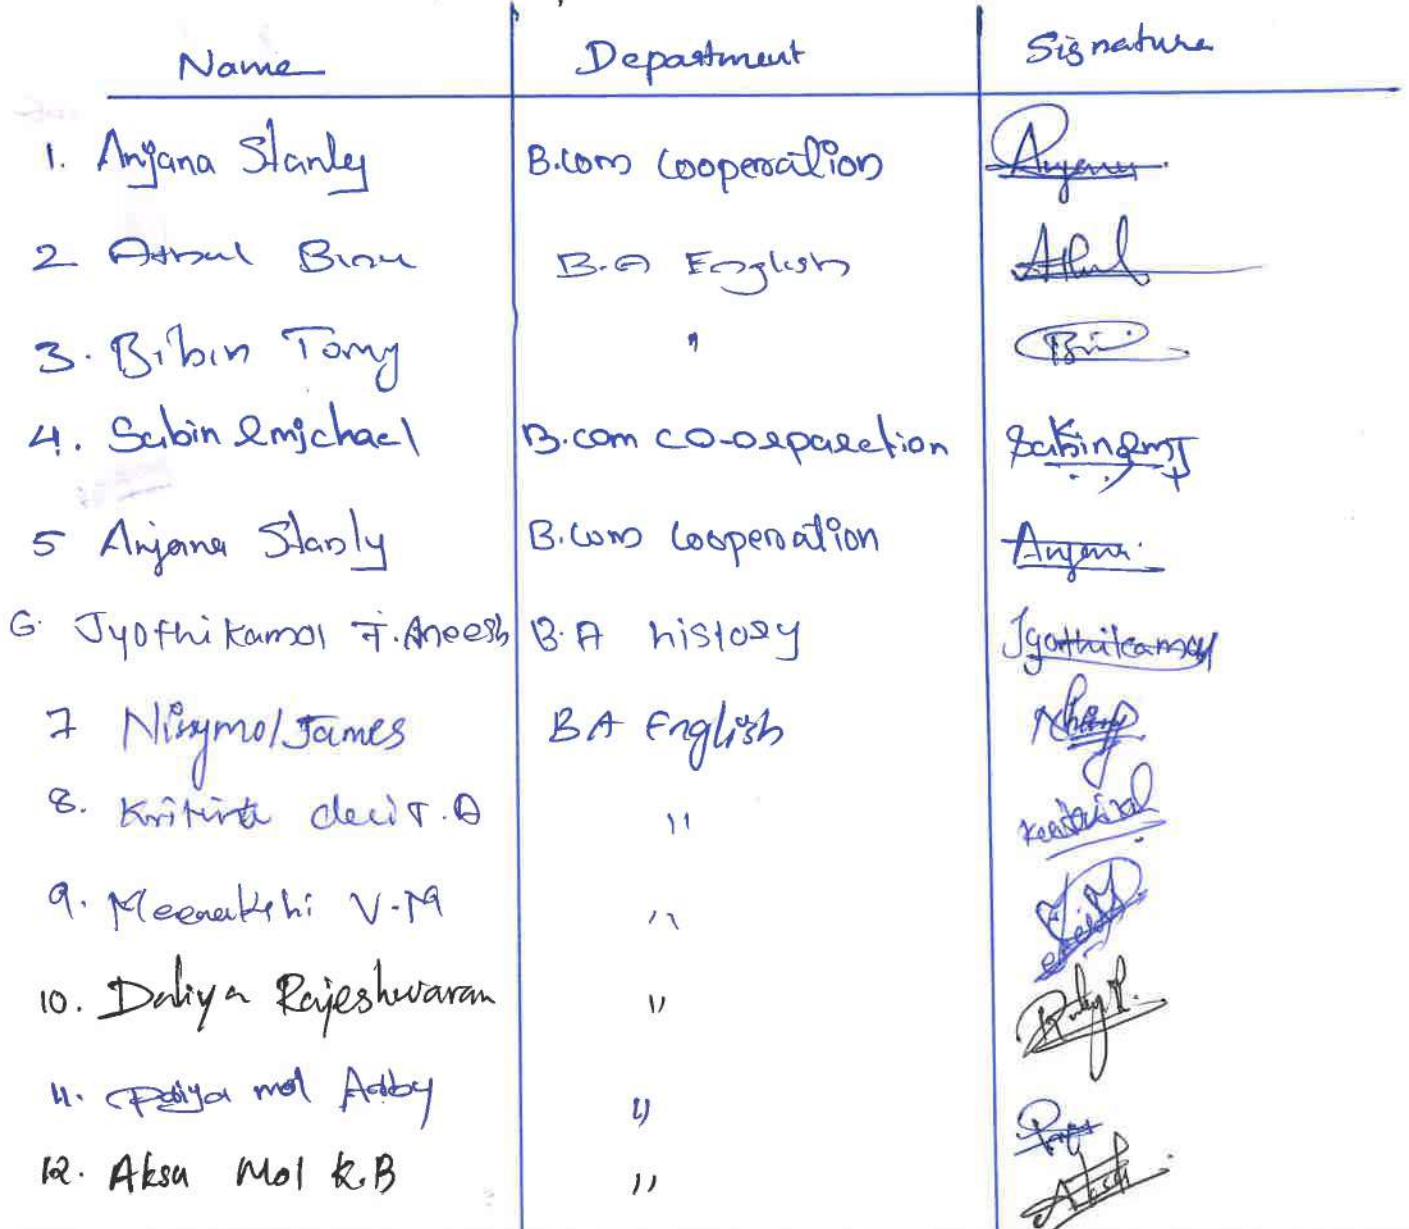 Name Department Signature
1. Anjana Stanley B.com Cooperation Anjana
2 Athul Binu B.A English Athul
3. Bibin Tomy " Bi
4. Sabin Emichael B.com co-oeparection SabinEmJ
5 Anjana Stanly B.Com Cooperation Anjana
6. Jyothikamol T. Aneesh B.A history Jyothikamol
7 Ninymol James BA English
8. devi T. A "
9. Meenakshi V.M "
10. Daliya Rajeshwaran "
11. Priya mol Adby "
12. Aksa Mol K.B "